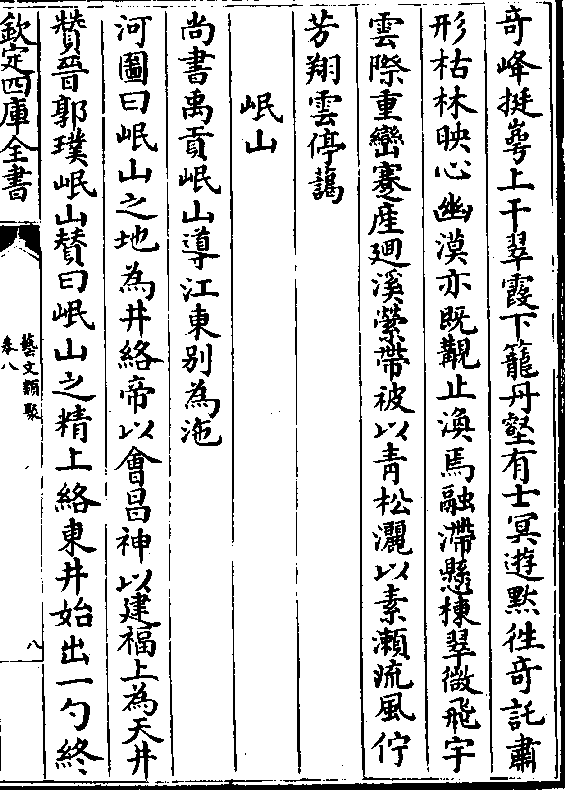 奇峰挺崿上干翠霞下籠丹壑有士冥遊黙徃奇託肅
形枯林映心幽漠亦既覯止渙焉融滯懸棟翠微飛宇
雲際重巒蹇産迴溪縈帶被以青松灑以素瀬流風佇
芳翔雲停藹
岷山
尚書禹貢岷山導江東别為沲
河圖曰岷山之地為井絡帝以會昌神以建福上為天井
賛晉郭璞岷山賛曰岷山之精上絡東井始出一勺終
欽定四庫全書
藝文類聚
卷八
八